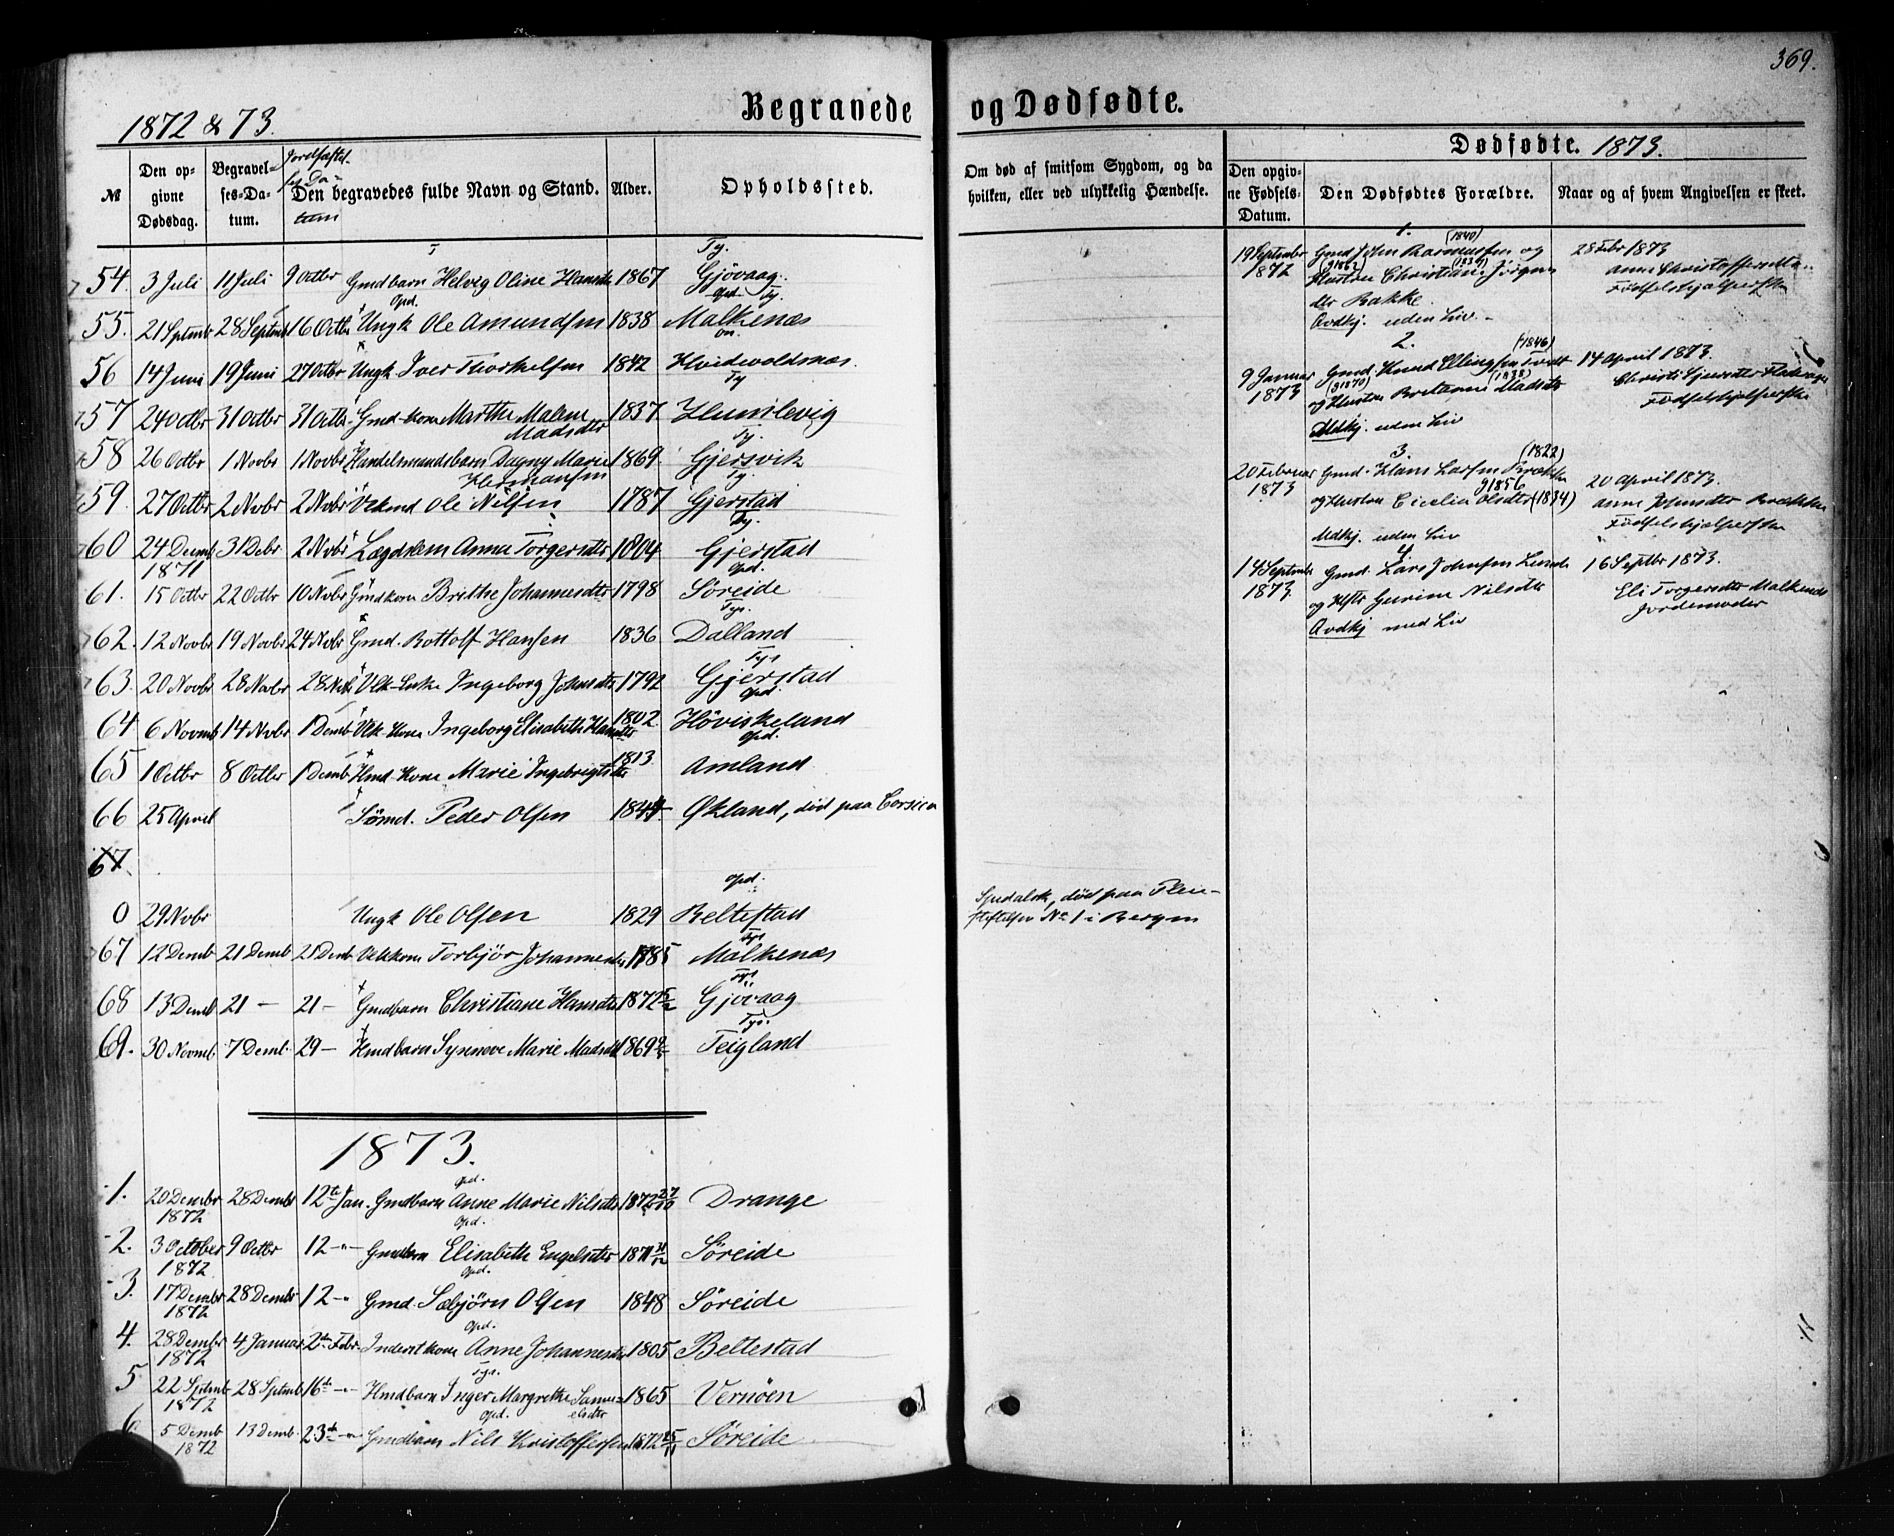 369.
1872 & 73.
Begravede
og Dødfødte.
№
Den opgivne Dødsdag.
Begravelses-Datum.
Jordfæstelses Datum
Den begravedes fulde Navn og Stand.
Alder.
Opholdssted.
Ty.
54. 3 Juli 11 Juli 9 Octbr Gmdbarn Helvig Oline Hansdtr 1867 Gjövaag
Opd. Ty.
55. 21 Septmbr 28 Septmbr 16 Octbr Ungk Ole Amundsen 1838 Malkenæs
56 14 Juni 19 Juni 27 Octbr Ungk Iver Thorkelsen 1842 Hvidevoldsnæs.
Ty
57 24 Octbr 31 Octbr 31 Octbr. Gmd. kone Marthe Malene Madsdtr 1837 Humlevig
Ty.
58 26 Octbr 1 Novbr 1 Novbr Handelsmandsbarn Dagny Marie Hermansen 1869. Gjersvik
Ty.
59. 27 Octbr 2 Novbr 2 Novbr Vekmd Ole Nilsen 1787 Gjerstad
Ty.
60 24 Decmb 1871 31 Decbr 2 Novbr Lægdslem Anna Torgersdtr 1804 Gjerstad
Opd.
61. 15 Octbr 22 Octbr 10 Novbr Gmdkone Brithe Johannesdtr 1798 Søreide
Tys.
62. 12 Novbr 19 Novbr 24 Novbr Gmd. Bottolf Hansen 1836 Dalland
Tys
63. 20 Novbr 28 Novbr 28 Novbr Vek-Enke Ingeborg Johnsdtr 1792 Gjerstad
Opd.
64 6 Novmb 14 Novbr 1 Decmb Vek. Kone Ingeborg Elisabeth Hansdtr 1802. Höviskeland
Opd.
65 1 Octbr 8 Octbr 1 Decmb Hmd. Kone Marie Ingebrigtsdtr 1813 Amland
66 25 April Sømd. Peder Olsen 1844. Økland, död paa Corsica
67.
Opd.
0 29 Novbr Ungk Ole Olsen 1829 Beltestad
Tys
67 12 Decmb 21 Decmb 21 Decmb Vekkone Torbjør Johannesdtr 1785 Malkenæs
Tys
68 13 Decmb 21 — 21 — Gmdbarn Christiane Hansdtr 1872 Gjövaag
Tys.
69. 30 Novmb. 7 Decmb. 29 — Hmdbarn Synneve Marie Madsdtr 1869 Teigland
1873.
Opd.
1. 20 Decmbr 1872 28 Decmbr 12te Jan. Gmdbarn Anne Marie Nilsdtr 1872 27/10 Drange
Opd.
2. 3 October 1872 9 Octbr 12 -"- Gmdbarn Elisabeth Engelsdtr 1871 Søreide
Opd.
3. 17 Decmbr 1872 28 Decmbr 12 -" Gmd. Sæbjørn Olsen 1848 Søreide
Opd.
4. 28 Decmbr 1872 4 Januar 2den Febr. Inderstkone Anne Johannesdtr 1805 Beltestad
Tys.
5 22 Septmb 1872 28 Septmb 16te -"- Hmdbarn Inger Margrethe Samuelsdtr 1865 Vernöen
Opd.
6. 5 Decmb 1872 13 Decmb. 23de -"- Gmdbarn Nils Kristoffersen 1872 25/11 Søreide
Om død af smitsom Sygdom, og da hvilken, eller ved ulykkelig Hændelse.
Spedalsk, død paa Pleie-
stiftelsen No 1 i Bergen
Dødfødte. 1873.
Den opgivne Fødsels-Datum.
Den Dødfødtes Forældre.
Naar og af hvem Angivelsen er skeet.
1.
19 September 1872
Gmd John Rasmussen (1840) og
Hustru Christiane Jörgens
dtr Bakke.
Ovdkj. uden Liv.
28 Febr 1873
Anne Christoffersdtr
Fødselshjælperske
2.
9 Januar 1873
Gmd. Knud Ellingsen Tvedt (1846)
(g 1870) og Hustru Bretanne Madsdtr (1838)
Mdkj. uden Liv
14 April 1873.
Christi Sjursdtr
Fødselshjælperske
3.
20 Februar 1873
Gmd. Hans Larsen Brække (1822)
g 1856
og Hustru Cicelia Olsdtr (1834)
Mdkj. uden Liv
20 April 1873.
Anne Johnsdtr Brække
Fødselshjælperske
4.
14 September 1873
Gmd. Lars Johnsen Lunde
og Hstr Gurine Nilsdtr
Ovdkj med Liv
16 Septbr 1873.
Eli Torgersdtr Malkenæs
Jordemoder